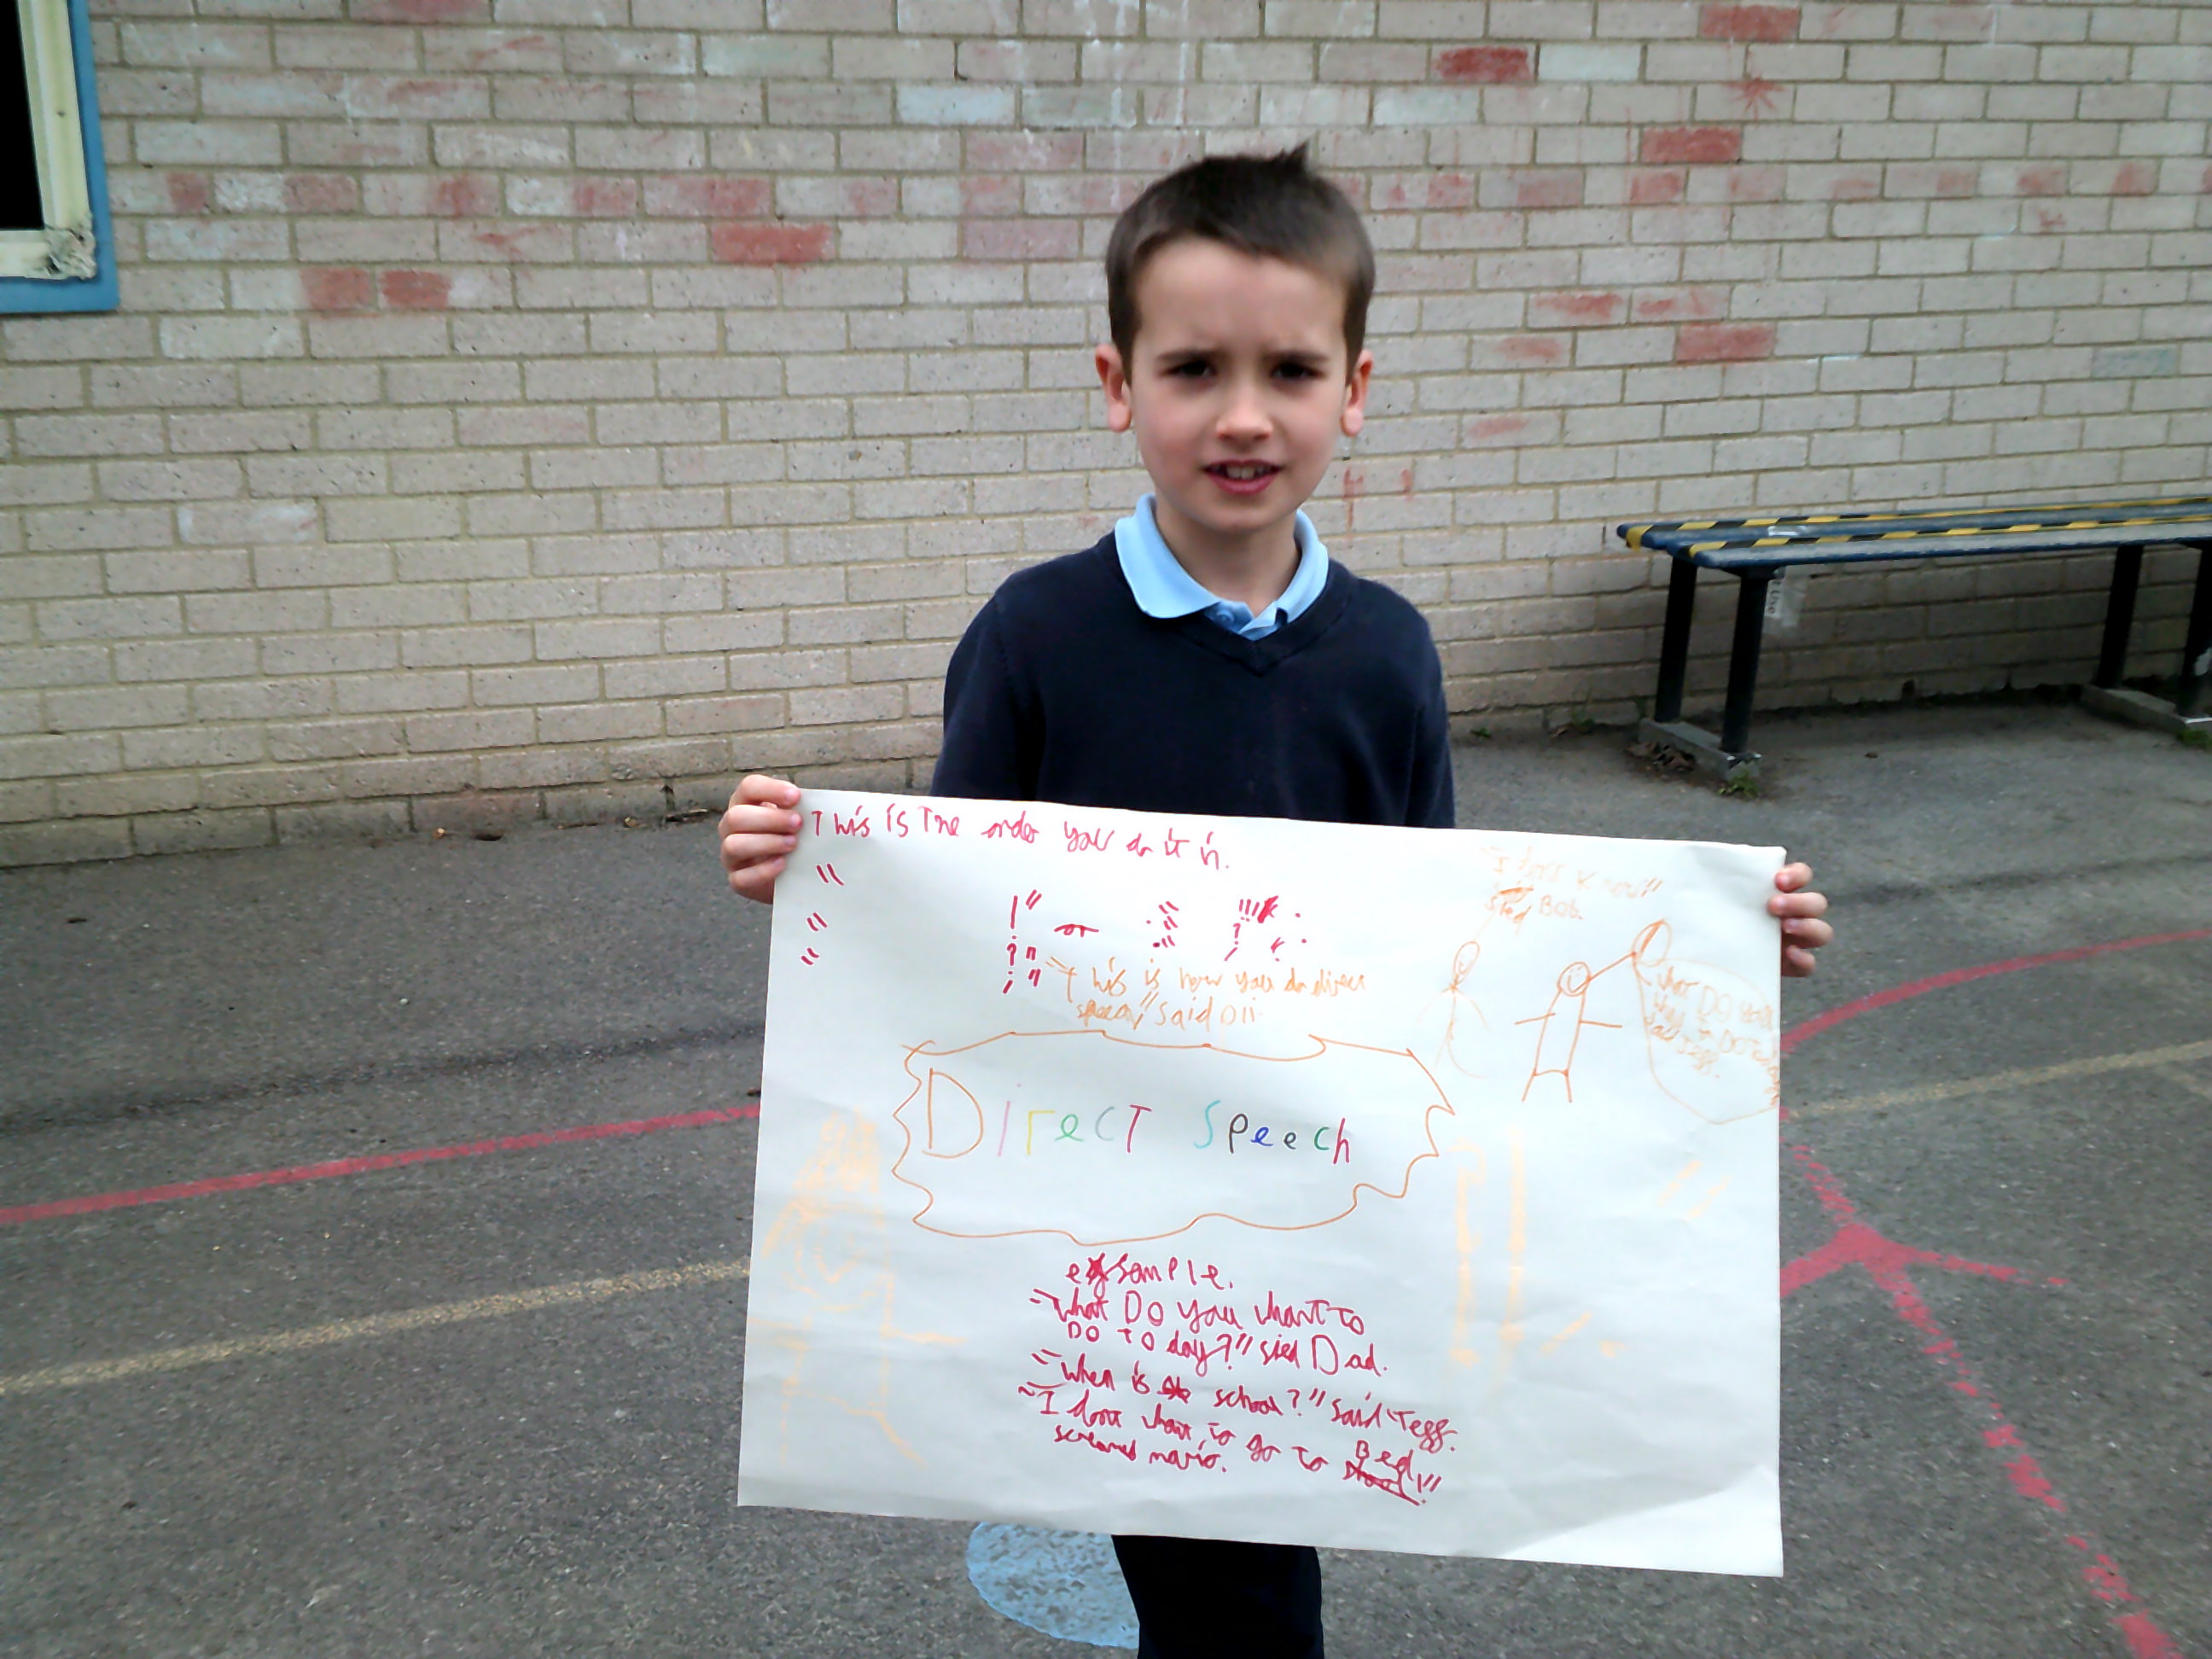 This is The order you do it in.
"
!" or ." !!! .
"
?" ." ? .
"
," ,
"I
Know"
sied Bob.
"This is how you do direct
speech," said Oli.
What DO you
Direct Speech
exsample.
"what Do you whant to
DO to day?" sied Dad.
"when is school?" said Tegg.
"I dont whant to go to Bed!"
screamed mario.